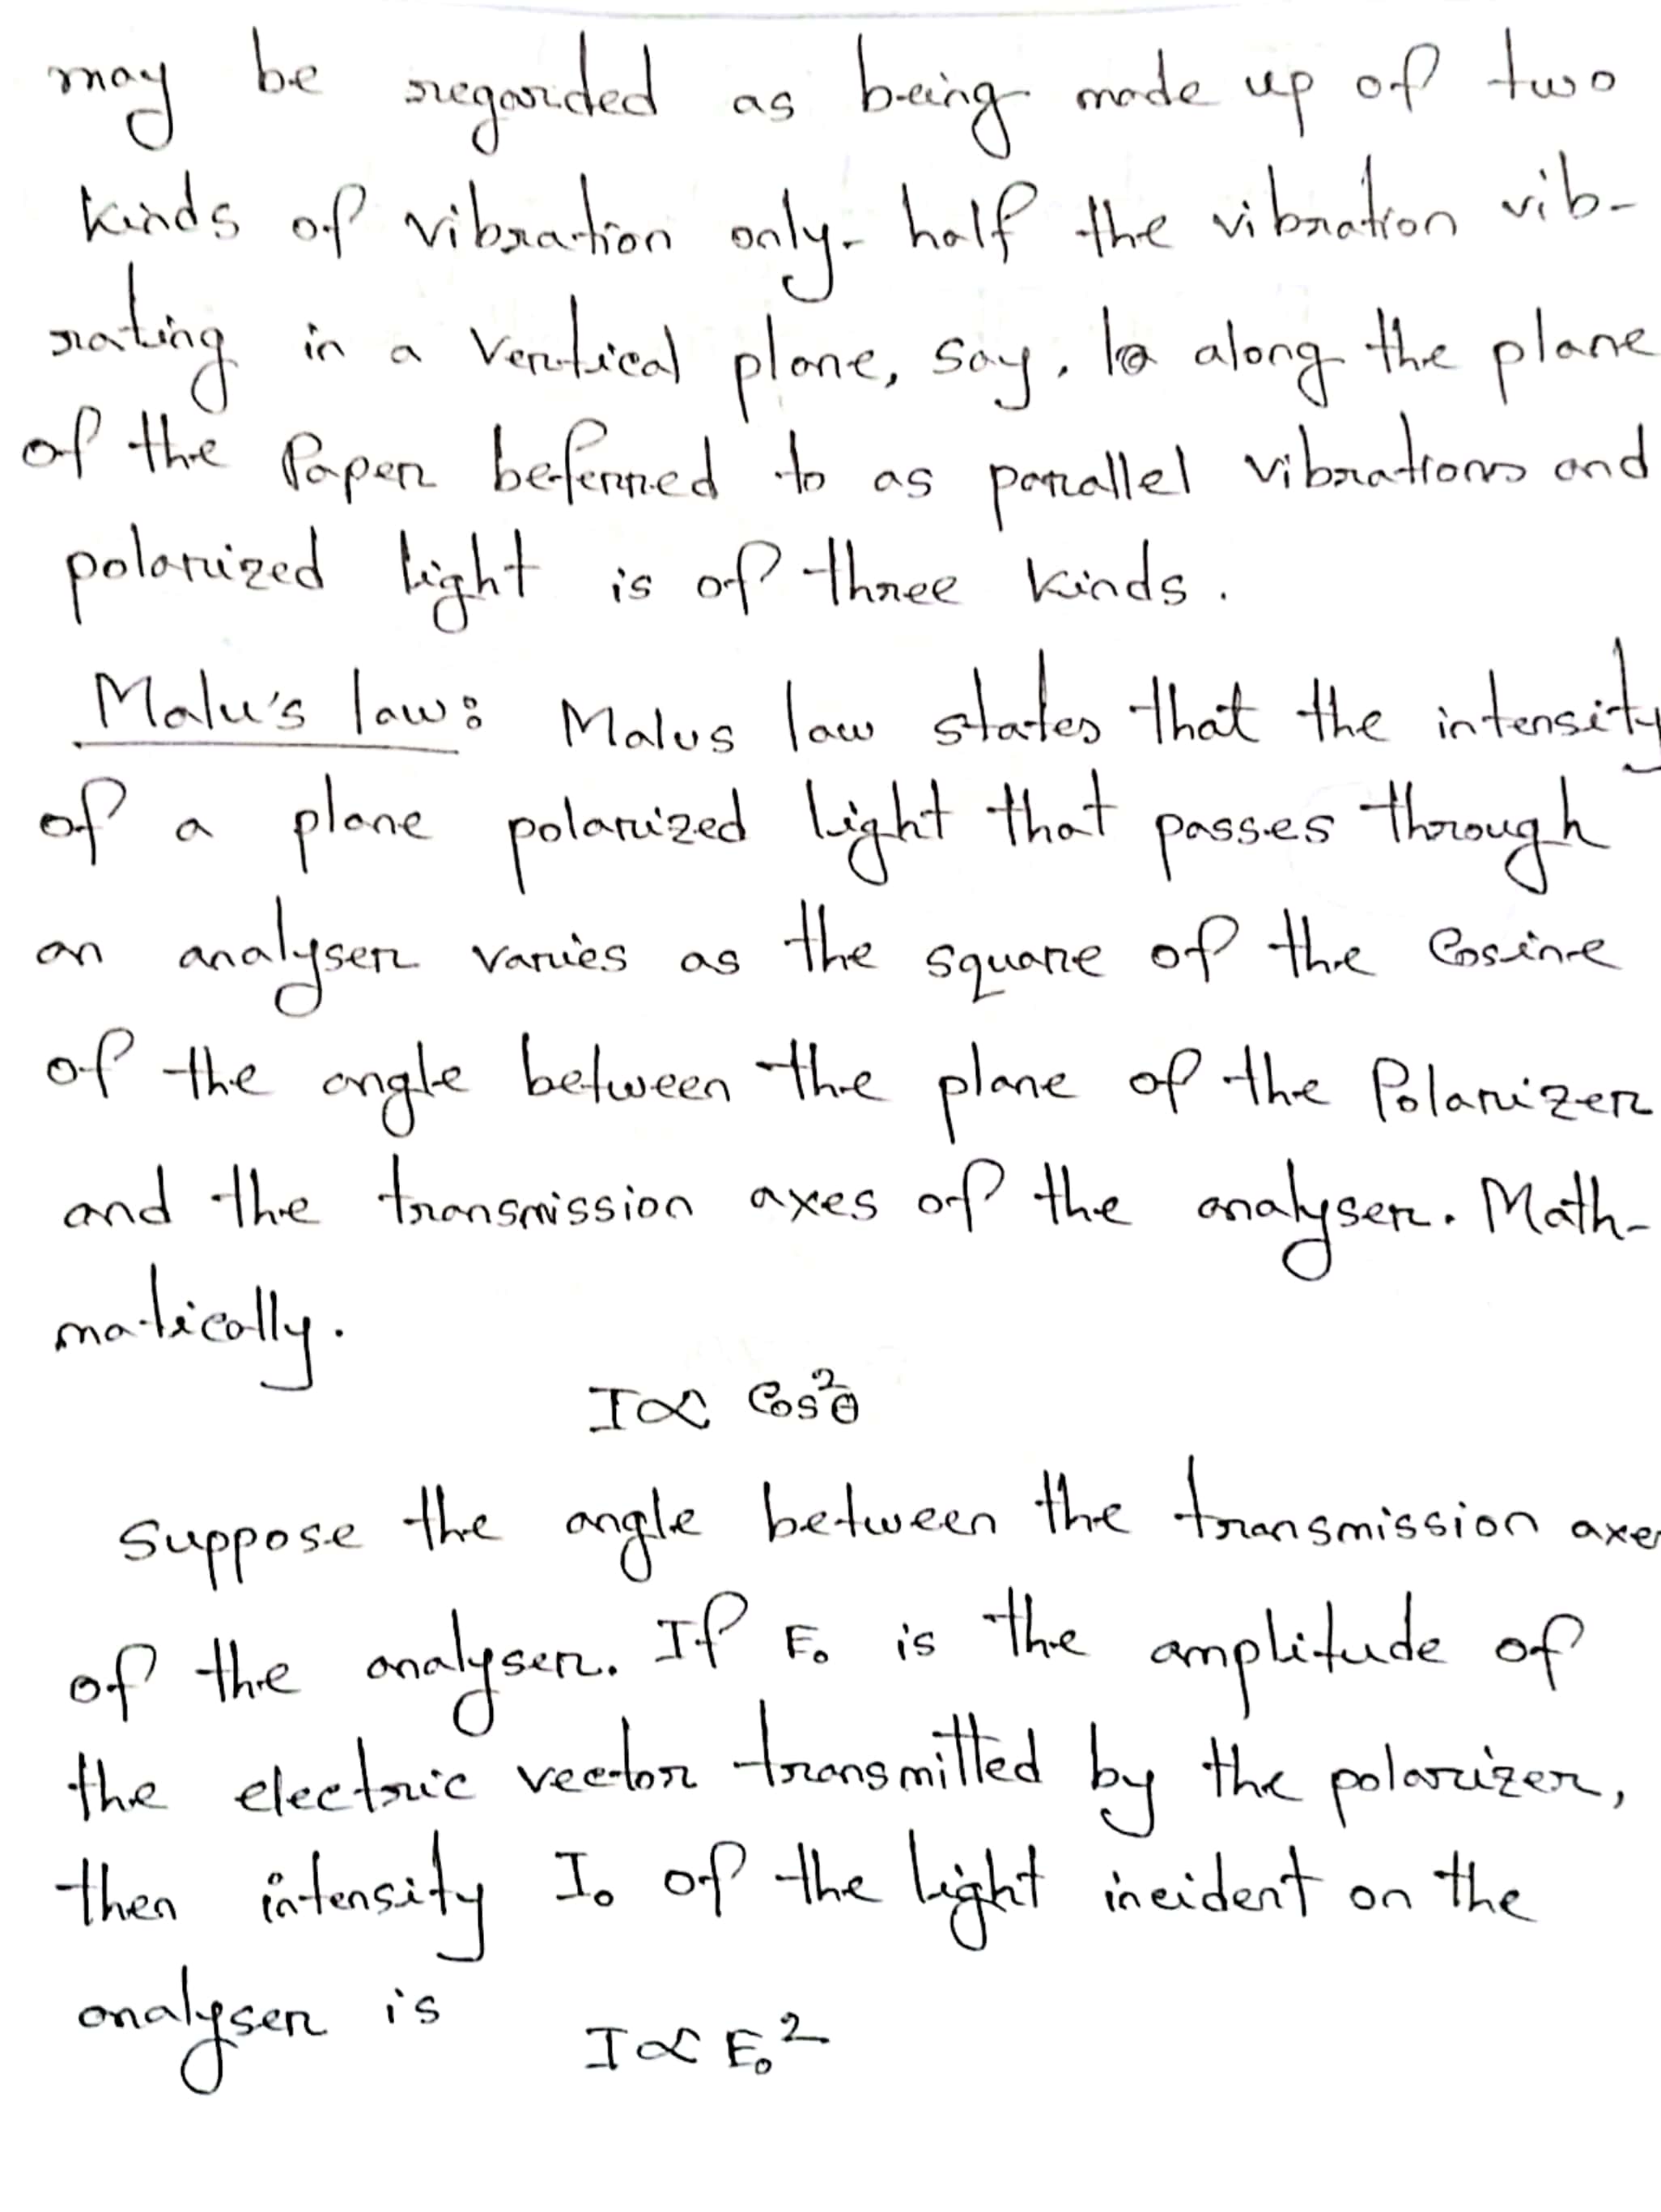 may be regarded as being made up of two
kinds of vibration only- half the vibration vib-
rating in a vertical plane, say, along the plane
of the Paper beferred to as parallel vibrations and
polarized light is of three kinds.
Malu's law: Malus law states that the intensity
of a plane polarized light that passes through
an analyser varies as the square of the Cosine
of the angle between the plane of the Polarizer
and the transmission axes of the analyser. Math-
matically.
I∝ Cos²θ
Suppose the angle between the transmission axes
of the analyser. If E₀ is the amplitude of
the electric vector transmitted by the polarizer,
then intensity I₀ of the light incident on the
analyser is
I∝ E₀²